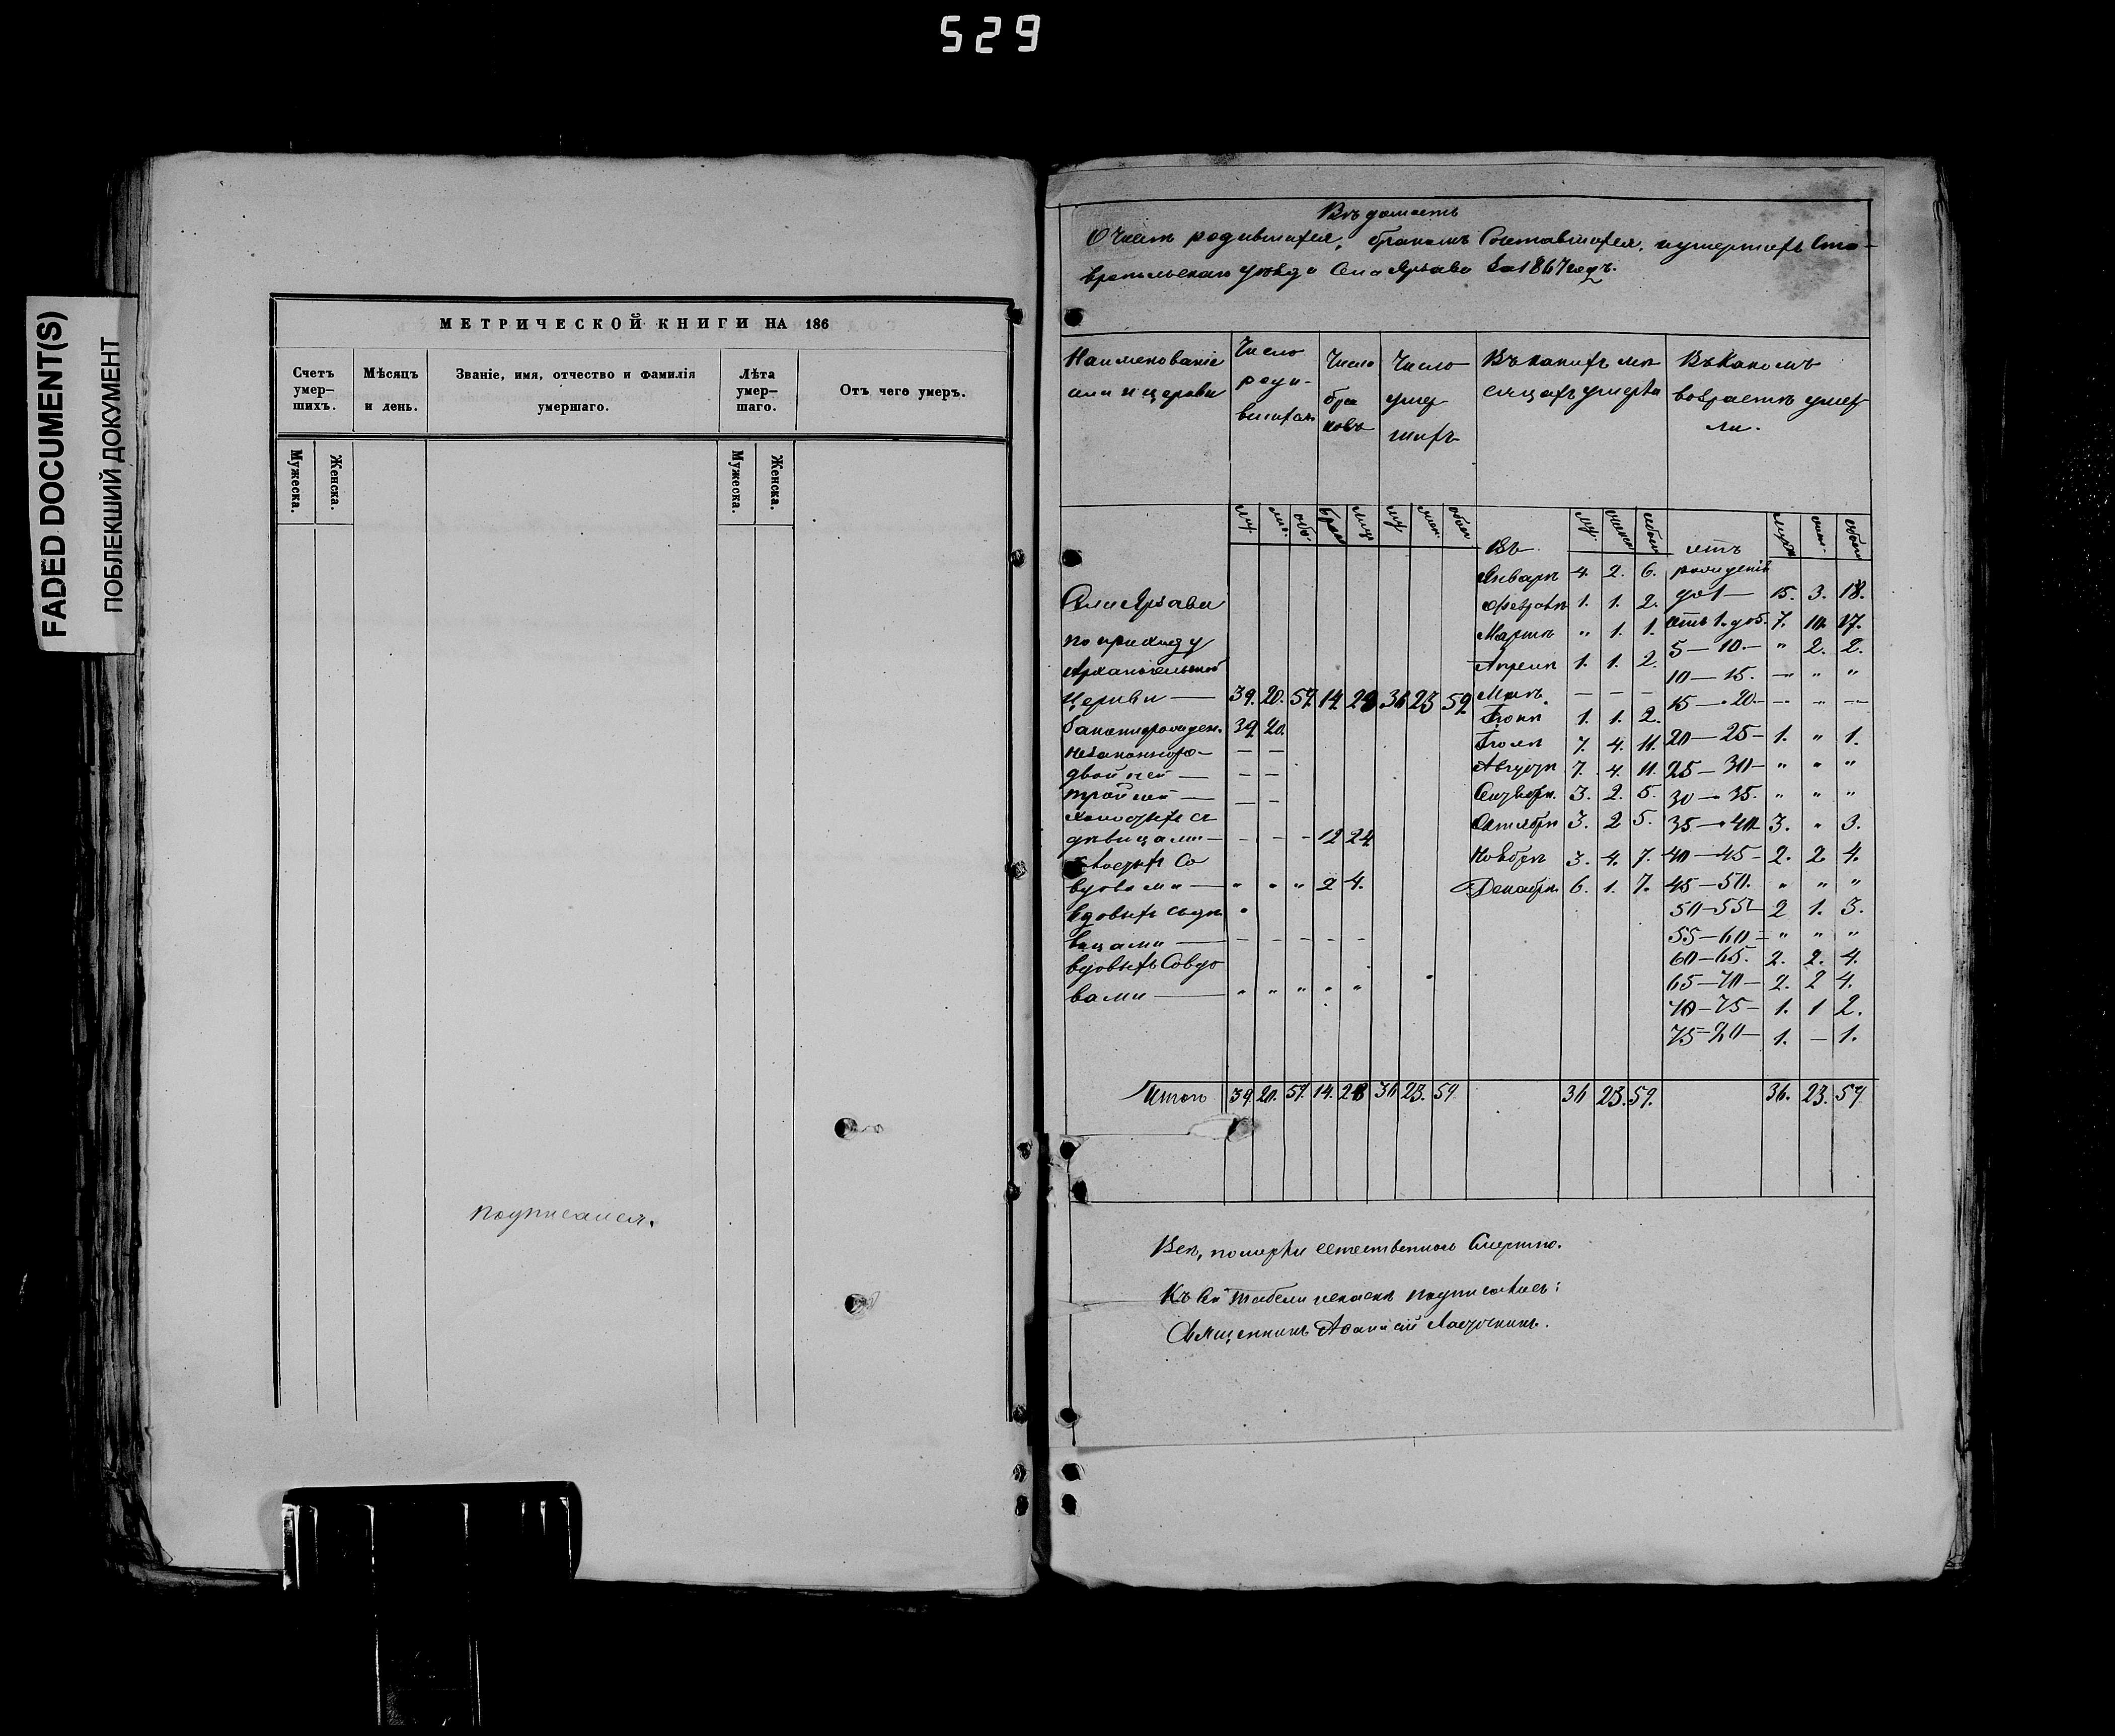 529
FADED DOCUMENT(S)
ПОБЛЕКШИЙ ДОКУМЕНТ
МЕТРИЧЕСКОЙ КНИГИ НА 186
Счетъ умер– шихъ.
Мѣсяцъ и день.
Званіе, имя, отчество и фамилія умершаго.
Лѣта умер– шаго.
Отъ чего умеръ.
Мужеска. Женска. Мужеска. Женска.
подписался.
Вѣдомость
О числѣ родившихся, бракомъ сочетавшихся, и умершихъ Ста-
вропольскаго уѣзда села за 1867 годъ.
Наименованіе села и церкви
Число роди- вшихся
Число бра ковъ
Число умер шихъ
Въ какихъ мѣ сяцахъ умерли
Въ какомъ возрастѣ умер ли.
Въ лѣтъ
Январѣ 4. 2. 6. рожденія
до 1 — 15. 3. 18.
Февралѣ 1. 1. 2.
отъ 1. до 5. 7. 10. 17.
Мартѣ " 1. 1.
5 — 10. — " 2. 2.
по приходу
Апрѣлѣ 1. 1. 2.
10 — 15. — " "
Архангельской
церкви — 39. 20. 59. 14 28 36 23 59.
Маѣ — — —
15 — 20. — — — —
Законнорожден. 39. 20.
Іюнѣ 1. 1. 2.
незаконнор — — —
Іюлѣ 7. 4. 11.
20 — 25 — 1. " 1.
двойней — — —
Августѣ 7. 4. 11.
25 — 30 — " " "
тройней — — —
Сентябрѣ 3. 2. 5.
30 — 35. " " "
холостыхъ съ
Октябрѣ 3. 2 5.
35 — 40 3. " 3.
дѣвицами — — — — 12 24
Ноябрѣ 3. 4. 7.
40 — 45 — 2. 2 4.
холостыхъ со
вдовами — " " " 2 4.
Декабрѣ 6. 1. 7.
45 — 50. " " "
вдовыхъ съ дѣ
50 — 55 — 2 1. 3.
вицами — — — — — —
55 — 60 — " " "
вдовыхъ со вдо
60 — 65. 2. 2. 4.
65 — 70 — 2. 2 4.
вами — " " " " "
70 — 75 — 1. 1 2.
1. — 1.
Итого 39. 20. 59. 14. 28 36 23. 59 36 23. 59. 36. 23. 59
Всѣ, померли естественною смертію.
Къ сей табели подписались:
Священникъ